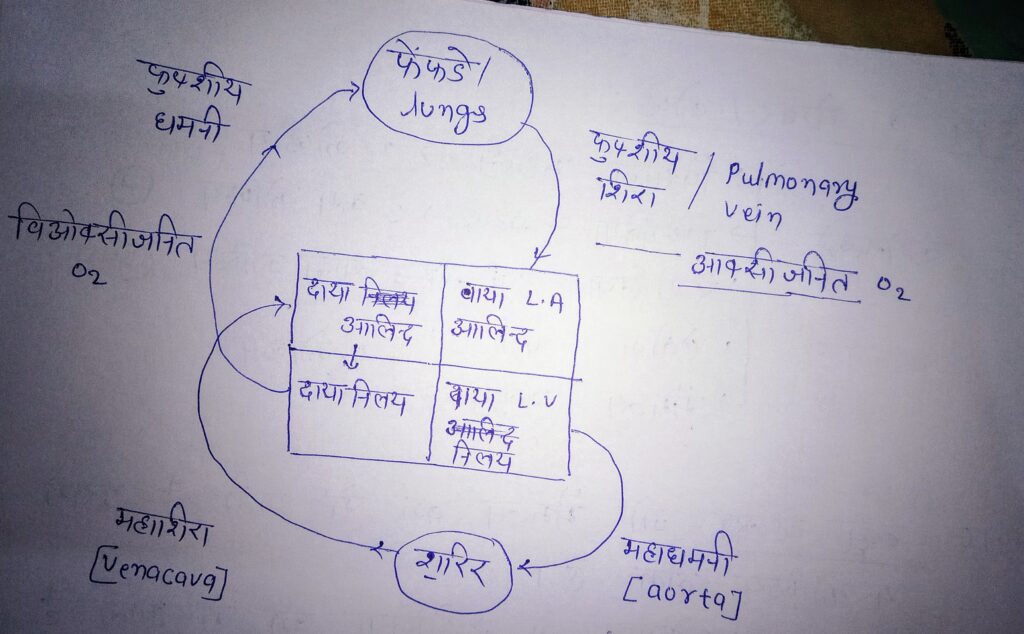 फेंफडे/
lungs
फुफ्शीय
धमनी
फुफ्शीय
शिरा / Pulmonary
vein
आक्सीजनित O2
विओक्सीजनित
O2
दाया निलय
आलिन्द
बाया L.A
आलिन्द
दाया निलय
बाया L.V
आलिन्द
निलय
महाशिरा
[Venacava]
शरिर
महाधमनी
[aorta]